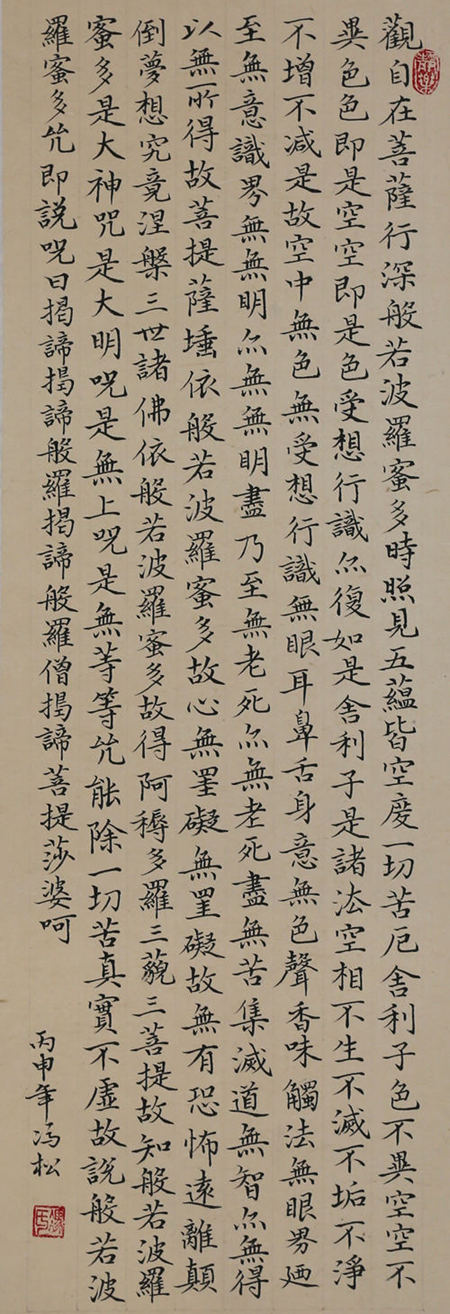 觀自在菩薩行深般若波羅蜜多時照見五蘊皆空度一切苦厄舍利子色不異空空不
異色色即是空空即是色受想行識亦復如是舍利子是諸法空相不生不滅不垢不淨
不增不减是故空中無色無受想行識無眼耳鼻舌身意無色聲香味觸法無眼界廼
至無意識界無無明亦無無明盡乃至無老死亦無老死盡無苦集滅道無智亦無得
以無所得故菩提薩埵依般若波羅蜜多故心無罣礙無罣礙故無有恐怖遠離顛
倒夢想究竟涅槃三世諸佛依般若波羅蜜多故得阿耨多羅三藐三菩提故知般若波羅
蜜多是大神咒是大明咒是無上咒是無等等咒能除一切苦真實不虛故說般若波
羅蜜多咒即說咒曰揭諦揭諦般羅揭諦般羅僧揭諦菩提莎婆呵
丙申年冯松